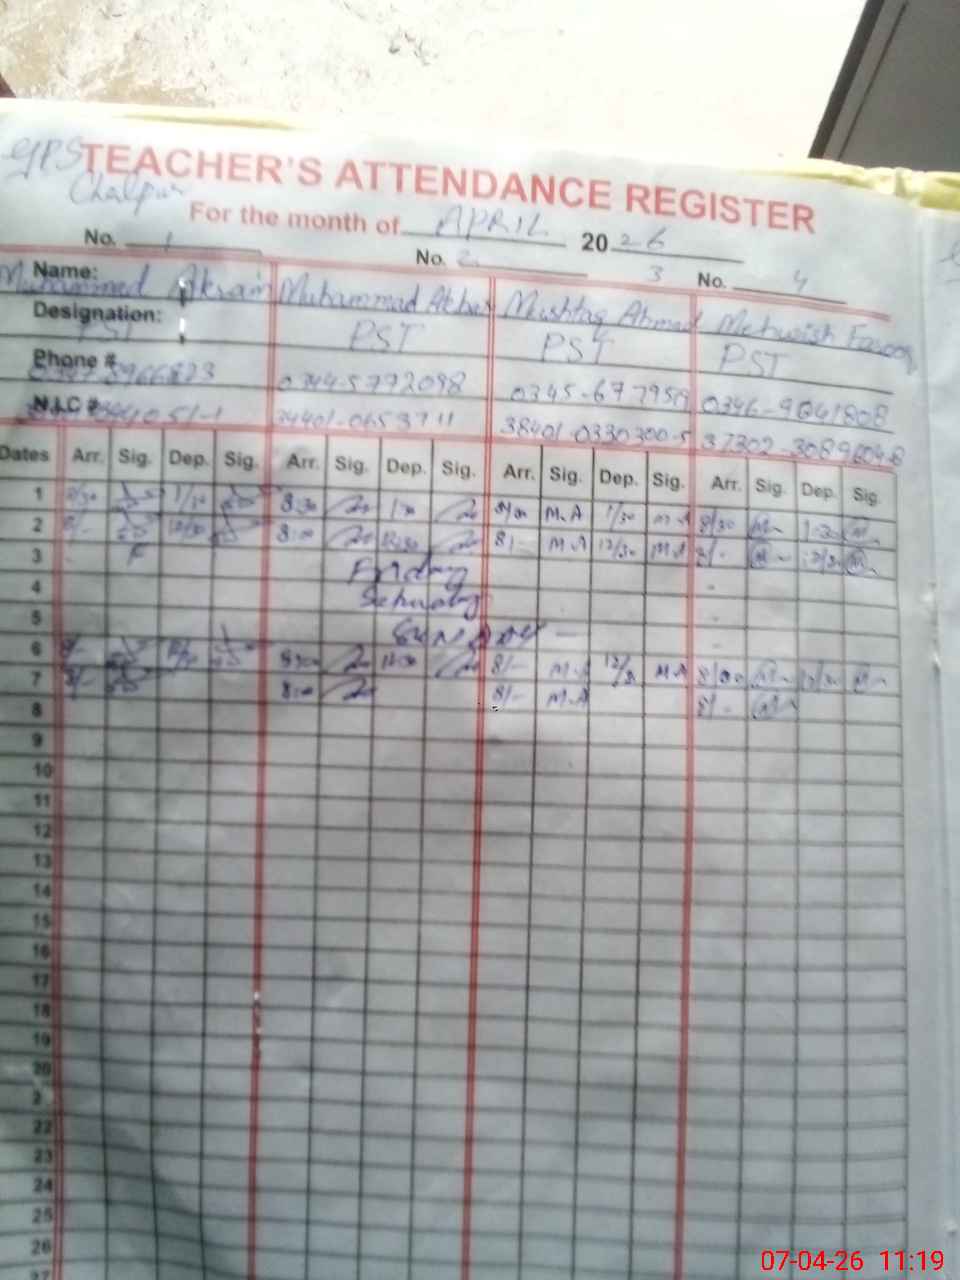 GPS TEACHER'S ATTENDANCE REGISTER
Chalpur
For the month of APRIL 2026
No. 1 No. 2 3 No. 4
Name: Muhammad Akram Muhammad Akber Mushtaq Ahmad Mehwish Farooq
Designation: PST PST PST PST
Phone # 0344-5772098 0346-9041808
N.I.C # 38401-0330300-5
Dates Arr. Sig. Dep. Sig. Arr. Sig. Dep. Sig. Arr. Sig. Dep. Sig. Arr. Sig. Dep. Sig.
1 8/30 1/30 8:30 8/30 M.A 1/30 M.A 8/30 1:30
2 8/- 12/30 8:00 12:30 8/- M.A 12/30 M.A 8/- 12/30
3 Friday
4 Saturday
5 SUNDAY -
6 8/- 8:00 8/- M.A M.A 8/00
7 8/- 8:00 8/- M.A 8/-
8
9
10
11
12
13
14
15
16
17
18
19
20
2
22
23
24
25
26
27
07-04-26 11:19